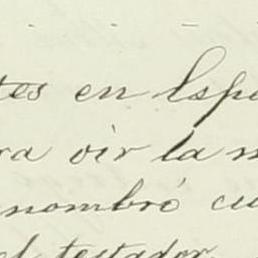 tes en Espe
ra oir la m
nombró cu
el testador